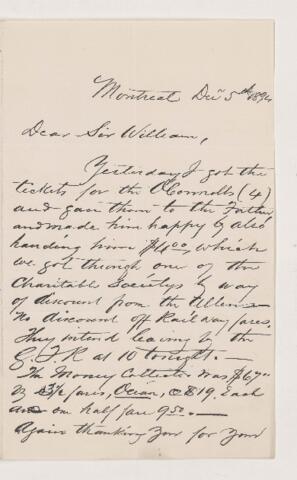 Montreal Dec 5th 1894
Dear Sir William,
Yesterday I got the
tickets for the O'Connells (4)
and gave them to the Father
and made him happy by also
handing him $4.00, which
we got through one of the
Charitable Societys by way
of discount from the Allen
No discount off Railway fares.
They intend leaving by the
G.T.R at 10 tonight. —
The Money Collected was $67.00
3 1/2 fares, Ocean, @ $19, Each
one half fare 9.50. —
Again thanking You for Your